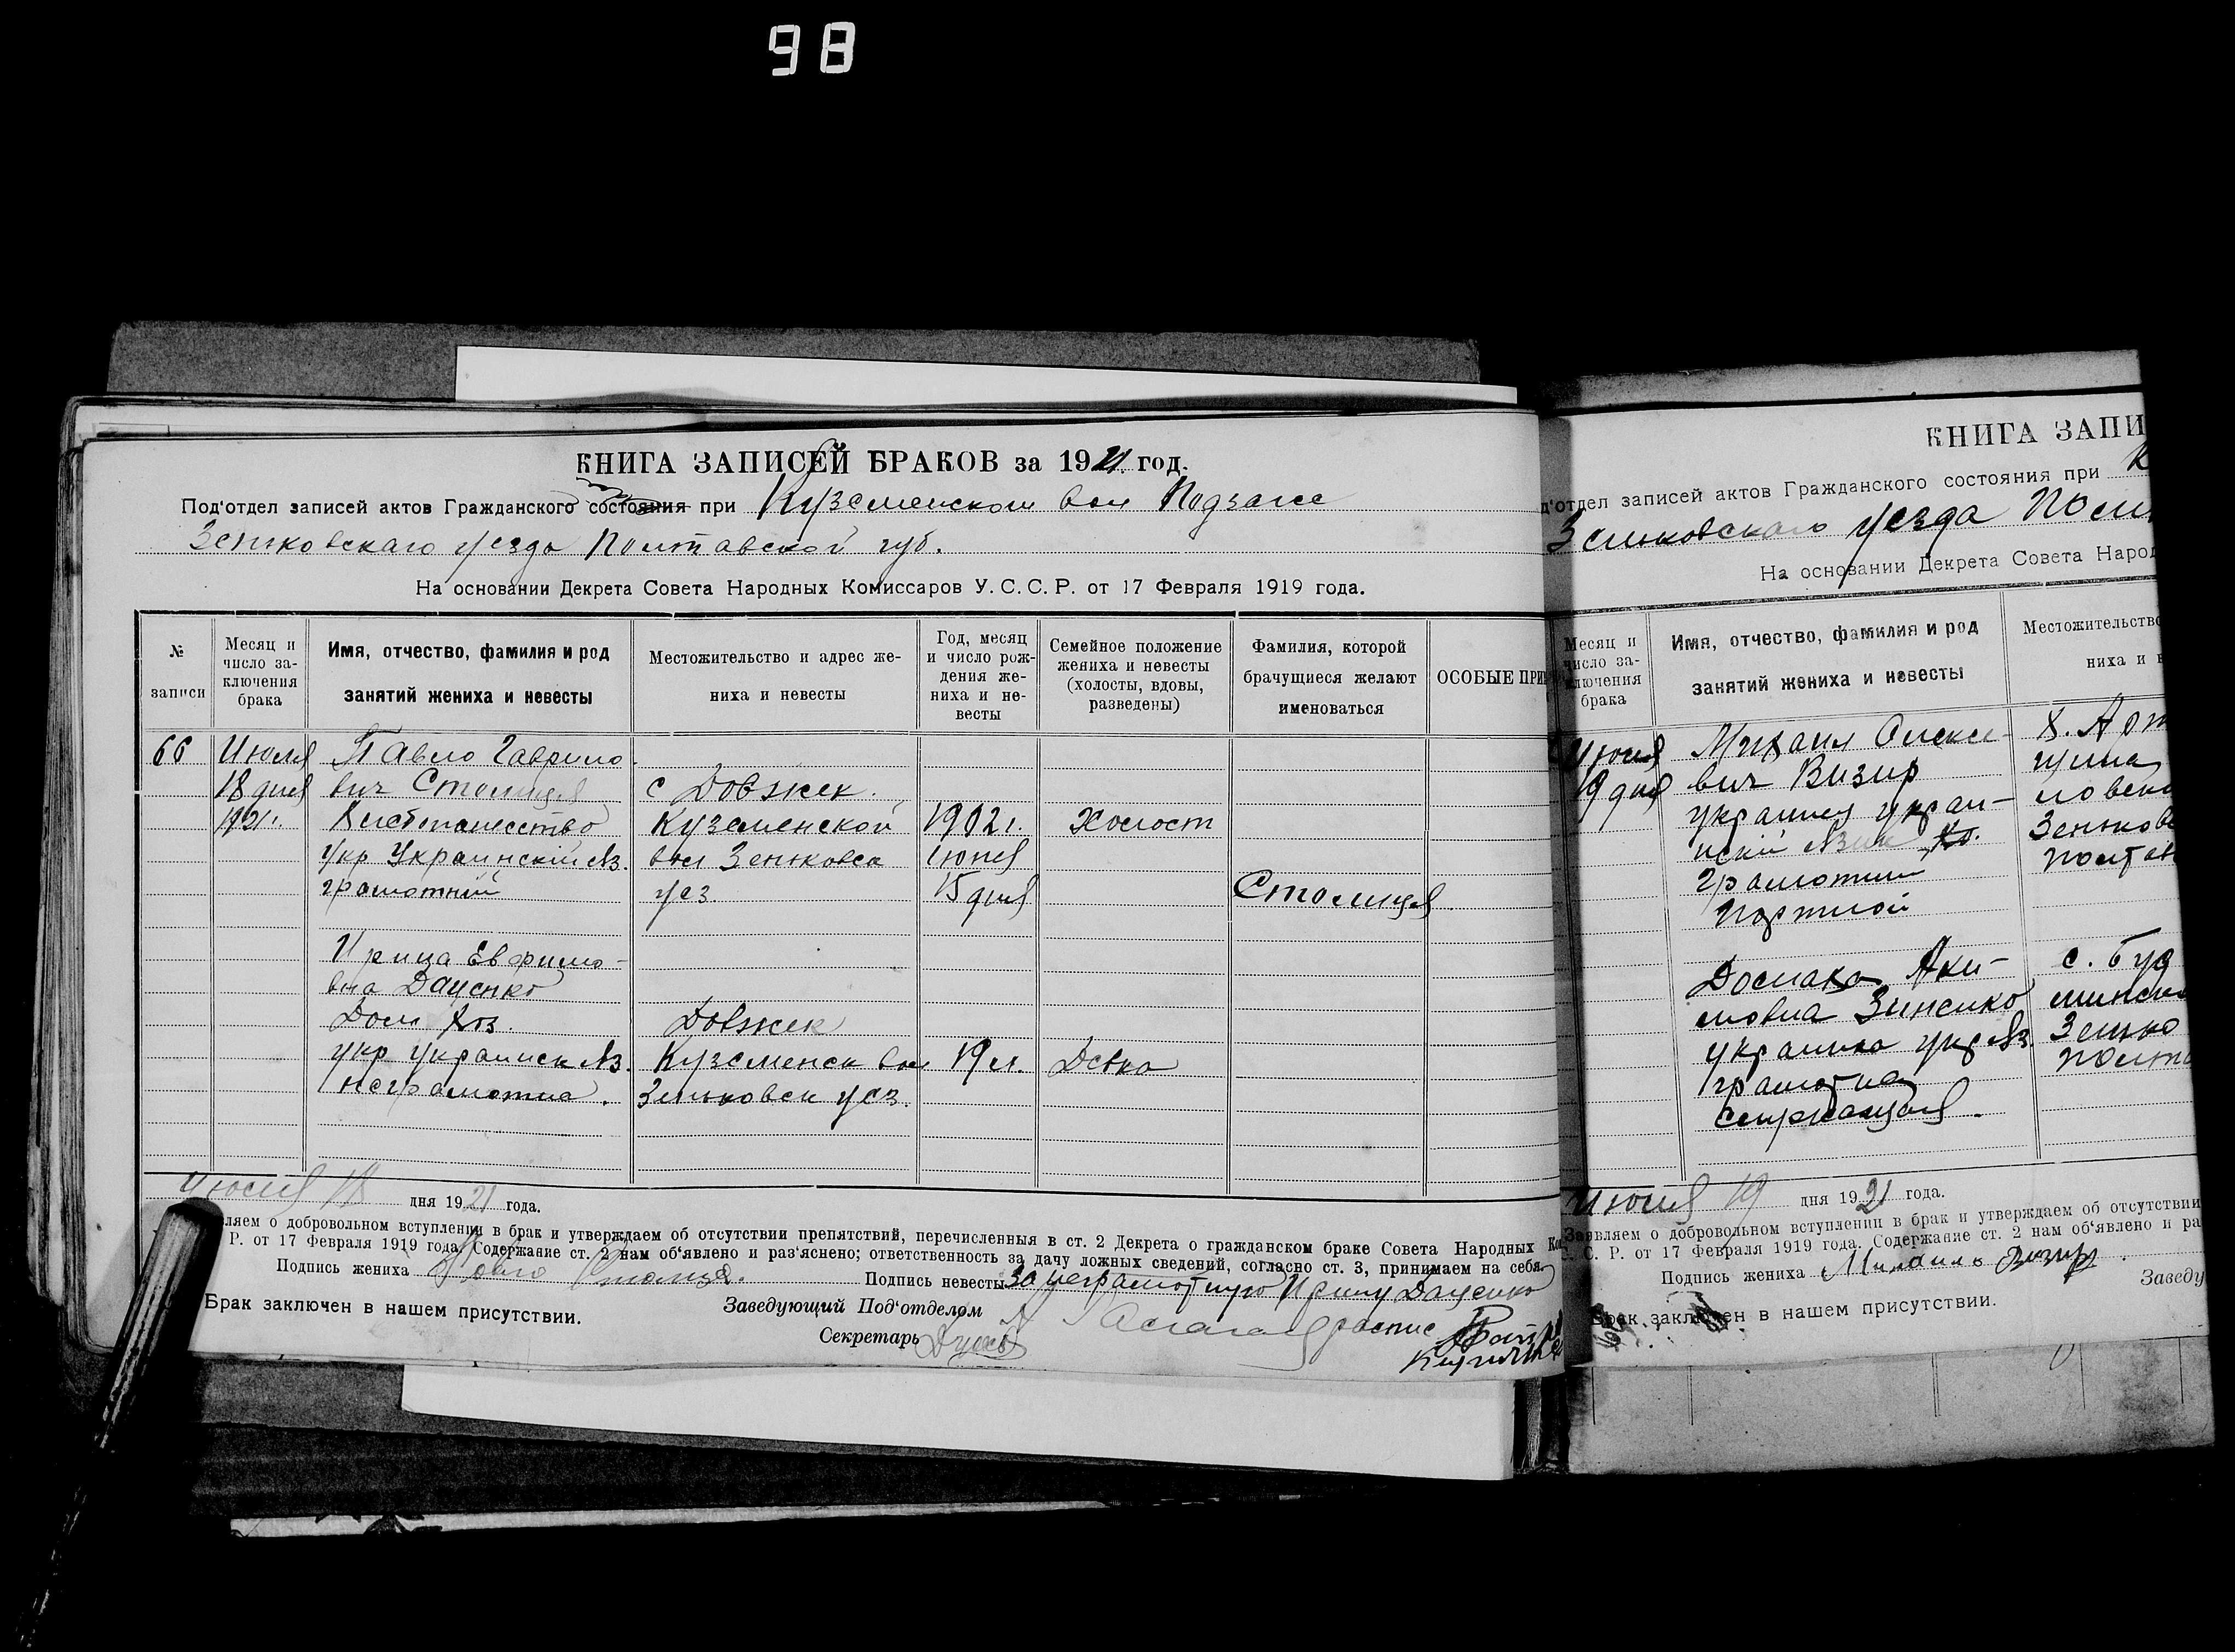 98
КНИГА ЗАПИСЕЙ БРАКОВ за 1921 год.
Под‘отдел записей актов Гражданского состояния при Куземенском вол Подзагсе
Зеньковскаго уезда Полтавской губ.
На основании Декрета Совета Народных Комиссаров У. С. С. Р. от 17 Февраля 1919 года.
№ записи
Месяц и число заключения брака
Имя, отчество, фамилия и род занятий жениха и невесты
Местожительство и адрес жениха и невесты
Год, месяц и число рождения жениха и невесты
Семейное положение жениха и невесты (холосты, вдовы, разведены)
Фамилия, которой брачущиеся желают именоваться
ОСОБЫЕ ПРИ
66 Июля Павло Гаврило
18 дня вич Столиця с Довжек.
1921г. Хлебопашество Куземенской 1902г. Холост
Укр Украинский яз. вол Зеньковск Июня
грамотний уез. 15 дня Столиця
Ирина Евфимо-
вна Даценко
Дом хоз. Довжек
укр украинск яз. Куземенск вол 19 л. Девка
неграмотна. Зеньковск уез.
Июля 18 дня 1921 года.
ляем о добровольном вступлении в брак и утверждаем об отсутствии препятствий, перечисленныя в ст. 2 Декрета о гражданском браке Совета Народных Ко
Р. от 17 Февраля 1919 года. Содержание ст. 2 нам об‘явлено и раз‘яснено; ответственность за дачу ложных сведений, согласно ст. 3, принимаем на себя.
Подпись жениха Павло Столиця. Подпись невесты За неграмотную Ирину Даценко
Брак заключен в нашем присутствии. Заведующий Под‘отделом роспис
Секретарь
КНИГА ЗАПИ
д‘отдел записей актов Гражданского состояния при К
Зеньковскаго уезда Полт
На основании Декрета Совета Народ
Месяц и число заключения брака
Имя, отчество, фамилия и род занятий жениха и невесты
Местожительство
ниха и н
Июля Михаил Олексе-
19 дня вич Визир
украинец украи-
нский язик
грамотний
Портной
Домаха Аки- с. Буд
мовна Зиненко
украинка укр яз. Зенько
грамотна Полта
служащая.
Июля 19 дня 1921 года.
Заявляем о добровольном вступлении в брак и утверждаем об отсутствии
С. С. Р. от 17 Февраля 1919 года. Содержание ст. 2 нам об‘явлено и ра
Подпись жениха Михаил Визир.
Заведу
Брак заключен в нашем присутствии.